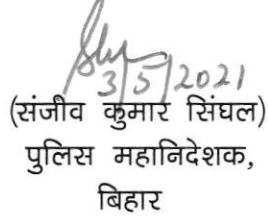 3/5/2021
(संजीव कुमार सिंघल)
पुलिस महानिदेशक,
बिहार